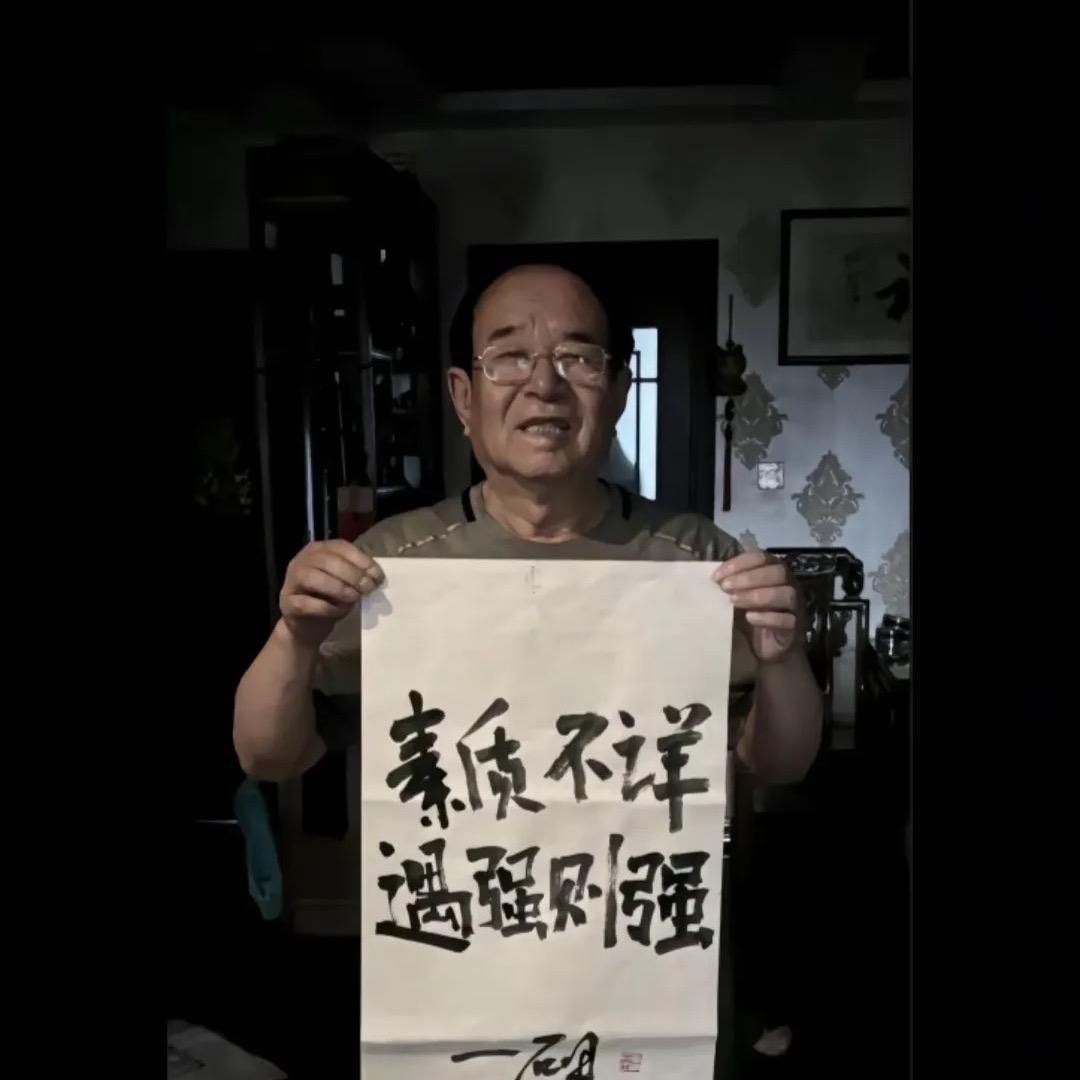 素质不详
遇强则强
一砚